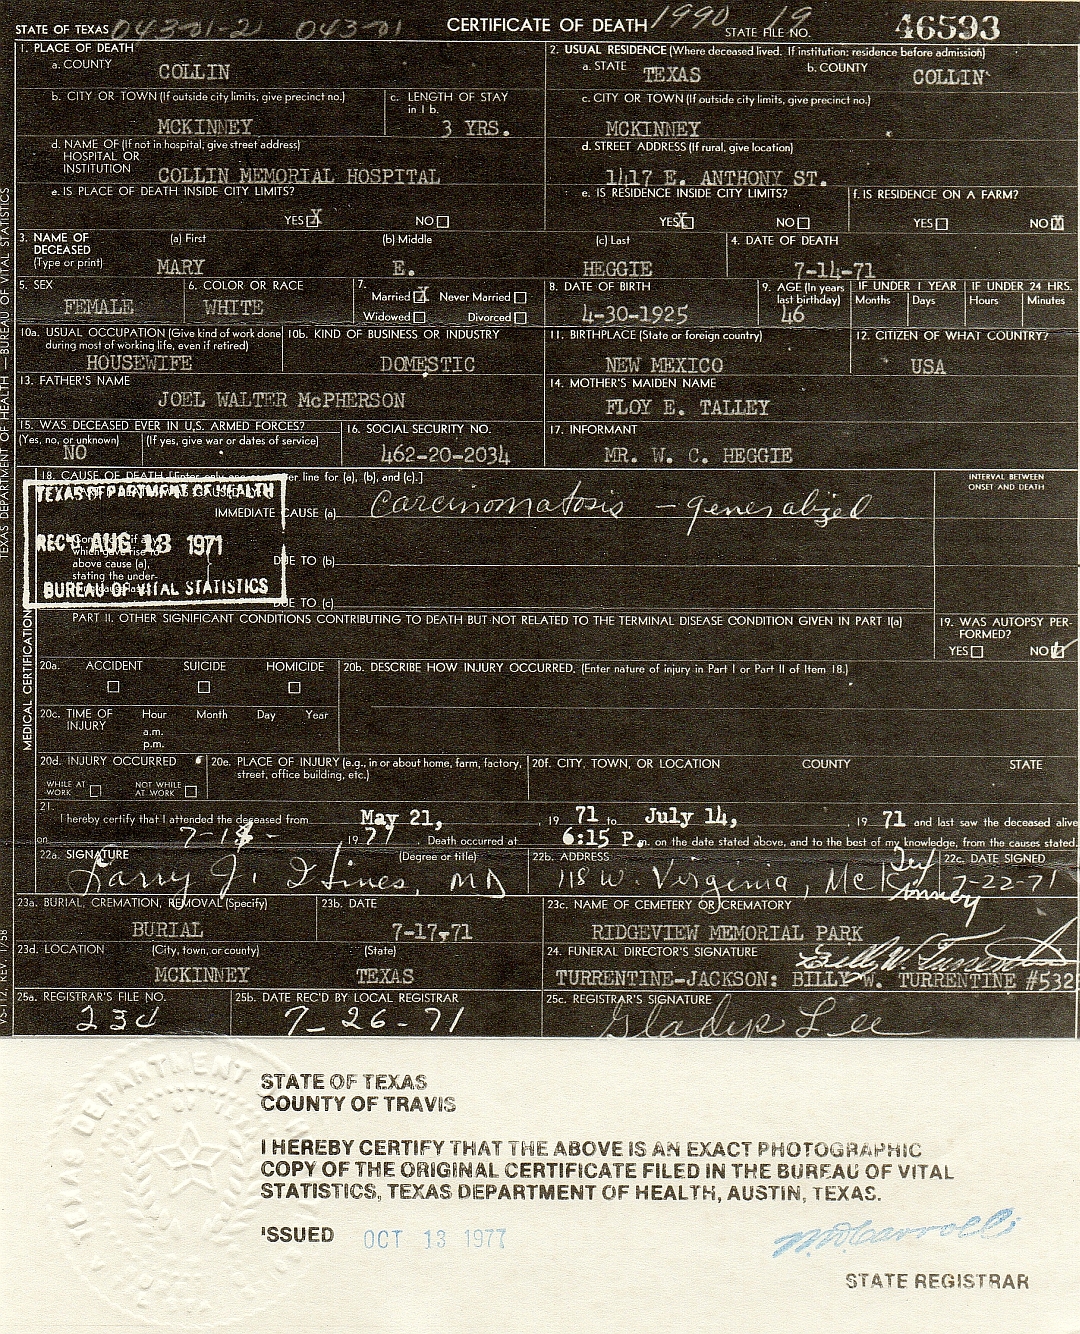 STATE OF TEXAS 043-01-2 043-01 CERTIFICATE OF DEATH 1990 19 STATE FILE NO. 46593
1. PLACE OF DEATH
a. COUNTY
COLLIN
2. USUAL RESIDENCE (Where deceased lived. If institution: residence before admission)
a. STATE
TEXAS
b. COUNTY
COLLIN
b. CITY OR TOWN (If outside city limits, give precinct no.)
MCKINNEY
c. LENGTH OF STAY
in 1 b.
3 YRS.
c. CITY OR TOWN (If outside city limits, give precinct no.)
MCKINNEY
d. NAME OF (If not in hospital, give street address)
HOSPITAL OR
INSTITUTION
COLLIN MEMORIAL HOSPITAL
d. STREET ADDRESS (If rural, give location)
1417 E. ANTHONY ST.
e. IS PLACE OF DEATH INSIDE CITY LIMITS?
YES X NO
e. IS RESIDENCE INSIDE CITY LIMITS?
YES X NO
f. IS RESIDENCE ON A FARM?
YES NO X
3. NAME OF
DECEASED
(Type or print)
(a) First (b) Middle (c) Last
MARY E. HEGGIE
4. DATE OF DEATH
7-14-71
5. SEX
FEMALE
6. COLOR OR RACE
WHITE
7.
Married X Never Married
Widowed Divorced
8. DATE OF BIRTH
4-30-1925
9. AGE (In years
last birthday)
46
IF UNDER 1 YEAR
Months Days
IF UNDER 24 HRS.
Hours Minutes
10a. USUAL OCCUPATION (Give kind of work done
during most of working life, even if retired)
HOUSEWIFE
10b. KIND OF BUSINESS OR INDUSTRY
DOMESTIC
11. BIRTHPLACE (State or foreign country)
NEW MEXICO
12. CITIZEN OF WHAT COUNTRY?
USA
13. FATHER'S NAME
JOEL WALTER McPHERSON
14. MOTHER'S MAIDEN NAME
FLOY E. TALLEY
15. WAS DECEASED EVER IN U.S. ARMED FORCES?
(Yes, no, or unknown) (If yes, give war or dates of service)
NO
16. SOCIAL SECURITY NO.
462-20-2034
17. INFORMANT
MR. W. C. HEGGIE
TEXAS DEPARTMENT OF HEALTH — BUREAU OF VITAL STATISTICS
VS-112, REV. 1/58
MEDICAL CERTIFICATION
18. CAUSE OF DEATH [Enter only line for (a), (b), and (c).]
INTERVAL BETWEEN
ONSET AND DEATH
TEXAS DEPARTMENT OF HEALTH
REC'D AUG 13 1971
BUREAU OF VITAL STATISTICS
IMMEDIATE CAUSE (a) Carcinomatosis - generalized
which gave rise to
above cause (a),
stating the under-
DUE TO (b)
DUE TO (c)
PART II. OTHER SIGNIFICANT CONDITIONS CONTRIBUTING TO DEATH BUT NOT RELATED TO THE TERMINAL DISEASE CONDITION GIVEN IN PART I(a)
19. WAS AUTOPSY PER-
FORMED?
YES NO
20a. ACCIDENT SUICIDE HOMICIDE
20b. DESCRIBE HOW INJURY OCCURRED. (Enter nature of injury in Part I or Part II of Item 18.)
20c. TIME OF
INJURY
Hour Month Day Year
a.m.
p.m.
20d. INJURY OCCURRED
WHILE AT
WORK
NOT WHILE
AT WORK
20e. PLACE OF INJURY (e.g., in or about home, farm, factory,
street, office building, etc.)
20f. CITY, TOWN, OR LOCATION COUNTY STATE
21.
I hereby certify that I attended the deceased from May 21, 19 71 to July 14, 19 71 and last saw the deceased alive
on 7-14- 1971. Death occurred at 6:15 P.m. on the date stated above, and to the best of my knowledge, from the causes stated.
22a. SIGNATURE (Degree or title)
Larry J. Hines, MD
22b. ADDRESS
118 W. Virginia, McKinney
22c. DATE SIGNED
7-22-71
23a. BURIAL, CREMATION, REMOVAL (Specify)
BURIAL
23b. DATE
7-17-71
23c. NAME OF CEMETERY OR CREMATORY
RIDGEVIEW MEMORIAL PARK
23d. LOCATION (City, town, or county) (State)
MCKINNEY TEXAS
24. FUNERAL DIRECTOR'S SIGNATURE
Billy W. Turrentine
TURRENTINE-JACKSON: BILLY W. TURRENTINE #532
25a. REGISTRAR'S FILE NO.
234
25b. DATE REC'D BY LOCAL REGISTRAR
7-26-71
25c. REGISTRAR'S SIGNATURE
Gladys Lee
STATE OF TEXAS
COUNTY OF TRAVIS
I HEREBY CERTIFY THAT THE ABOVE IS AN EXACT PHOTOGRAPHIC
COPY OF THE ORIGINAL CERTIFICATE FILED IN THE BUREAU OF VITAL
STATISTICS, TEXAS DEPARTMENT OF HEALTH, AUSTIN, TEXAS.
ISSUED OCT 13 1977
STATE REGISTRAR